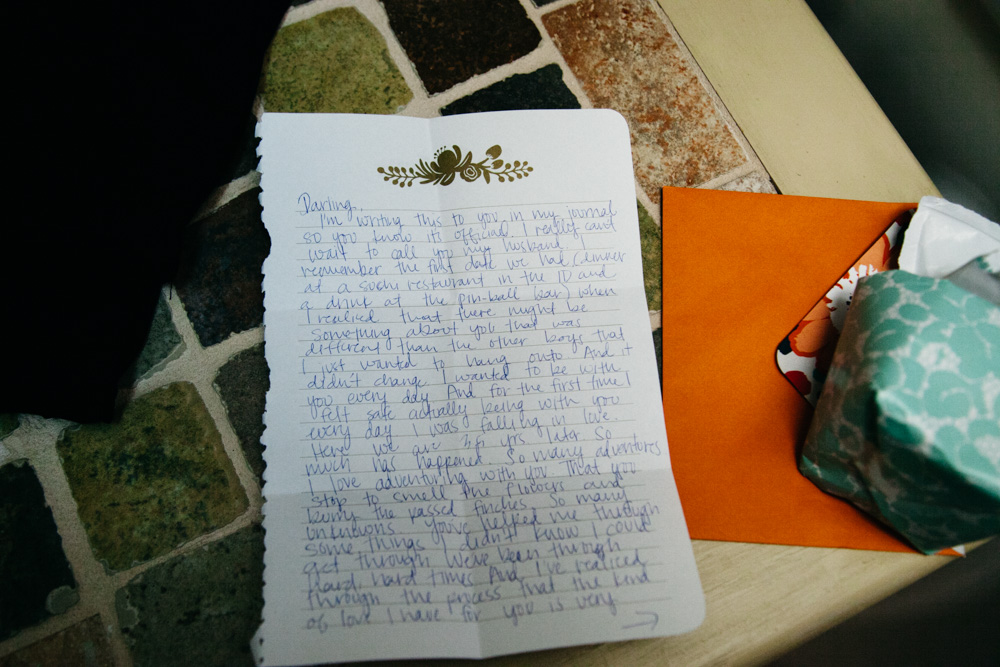 Darling,
I'm writing this to you in my journal
so you know its official. I really cant
wait to call you my husband. I
remember the first date we had (dinner
at a sushi restaurant in the ID and
a drink at the pin-ball bar) when
I realized that there might be
something about you that was
different than the other boys that
I just wanted to hang onto. And it
didn't change. I wanted to be with
you every day. And for the first time I
felt safe actually being with you
every day. I was falling in love.
Here we are yrs later. So
much has happened. So many adventures
I love adventuring with you. That you
stop to smell the flowers and
bury the passed finches. So many
unknowns. You've helped me through
some things I didn't know I could
get through. We've been through
hard, hard times. And I've realized
through the process that the kind
of love I have for you is very
→